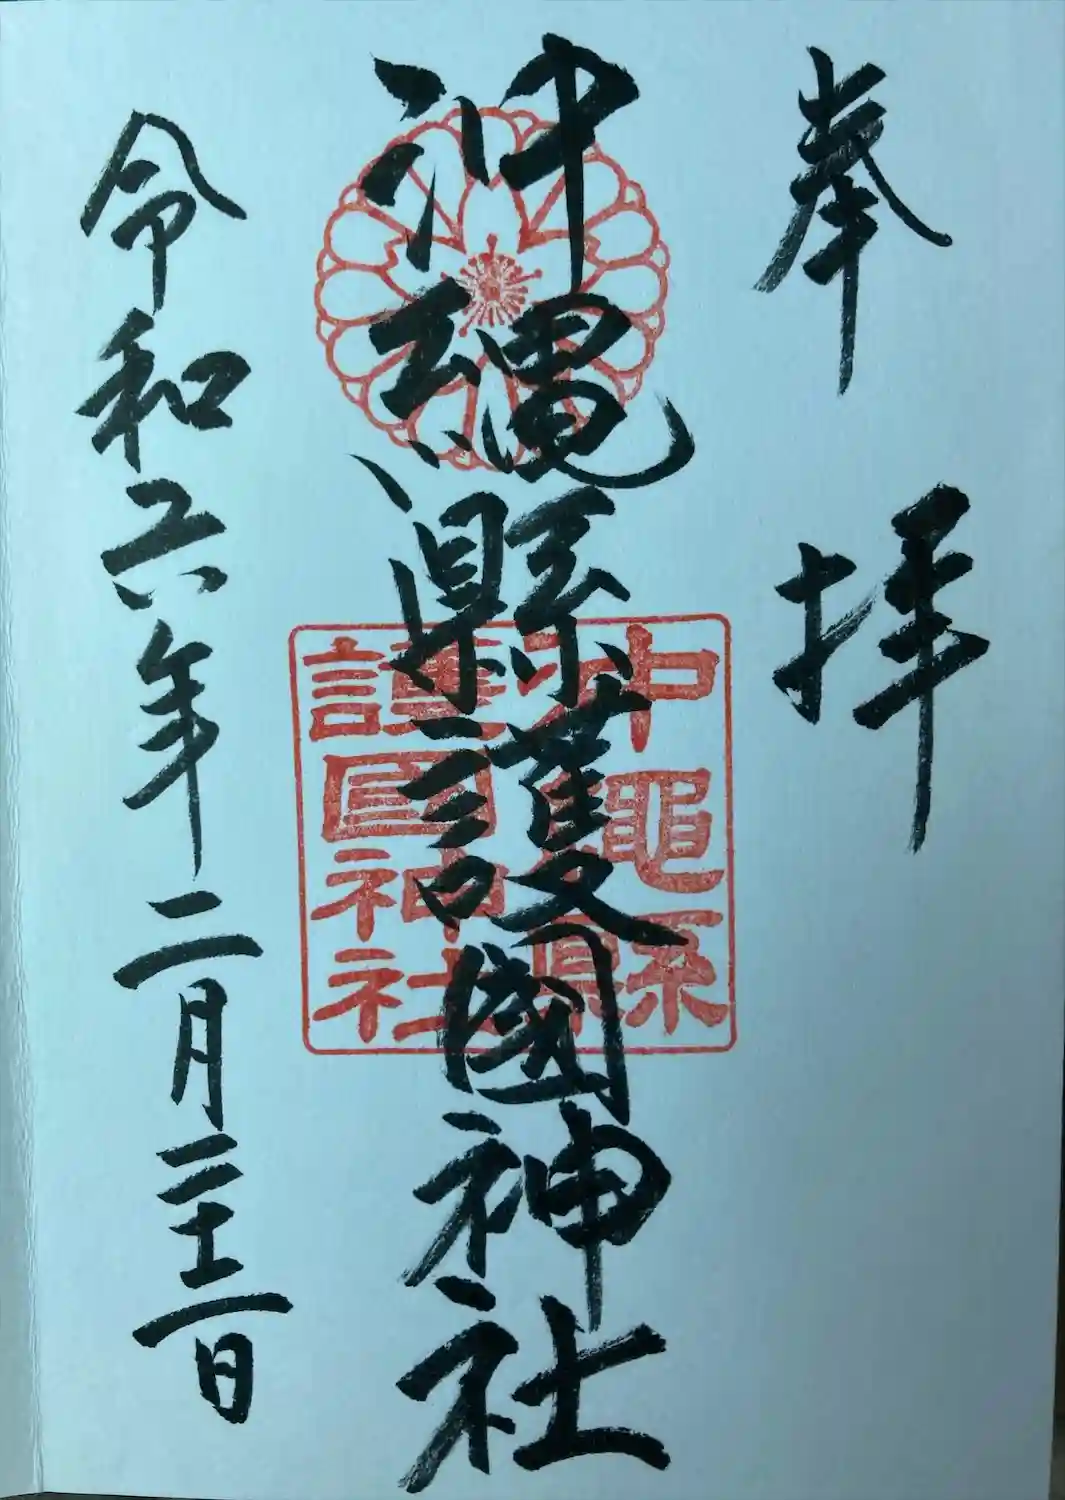 奉拝
沖縄縣護國神社
沖繩縣
護國神社
令和六年二月二十二日